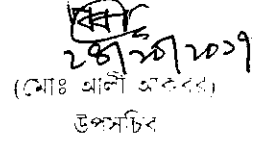 ২৪/১০/২০১৭
(মোঃ আলী আকবর)
উপসচিব